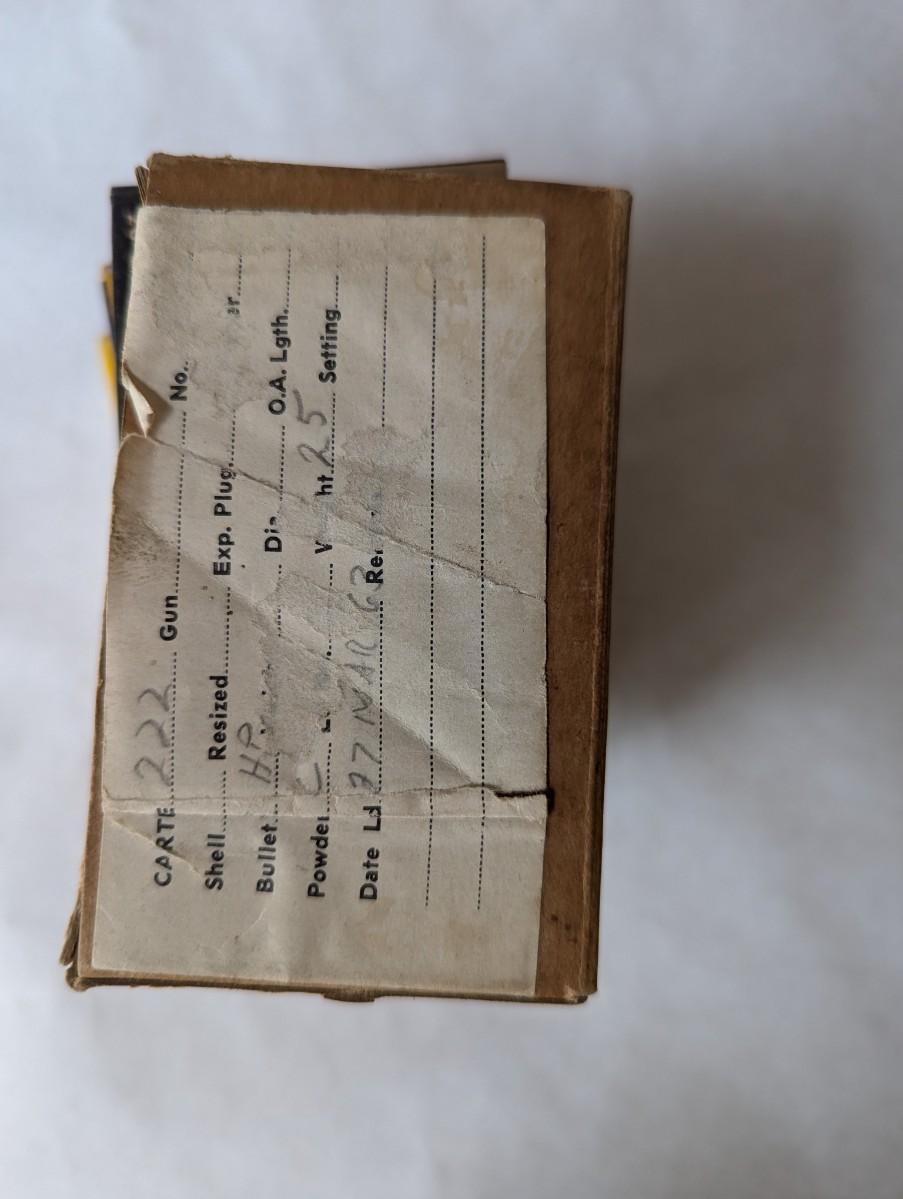 CARTE 222 Gun No.
Shell Resized Exp. Plug
Bullet HP O.A. Lgth.
Powder ht. 25 Setting
Date Ld. 27 MAR 63